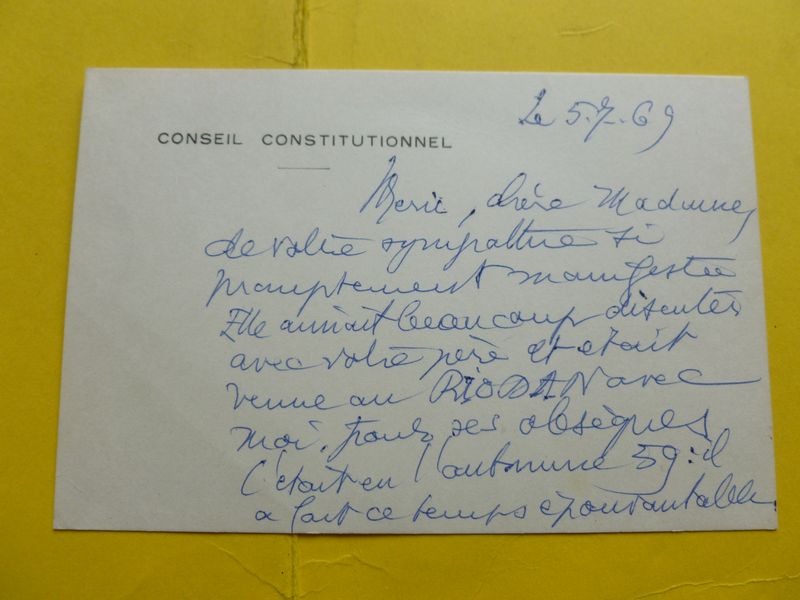 Le 5.7.69
CONSEIL CONSTITUTIONNEL
Merci, chère Madame,
de votre sympathie si
promptement manifestée
Elle aimait beaucoup discuter
avec votre père et était
venue au RIODAN avec
moi, pour ses obsèques
C'était en l'automne 59 : il
a fait ce temps épouvantable.